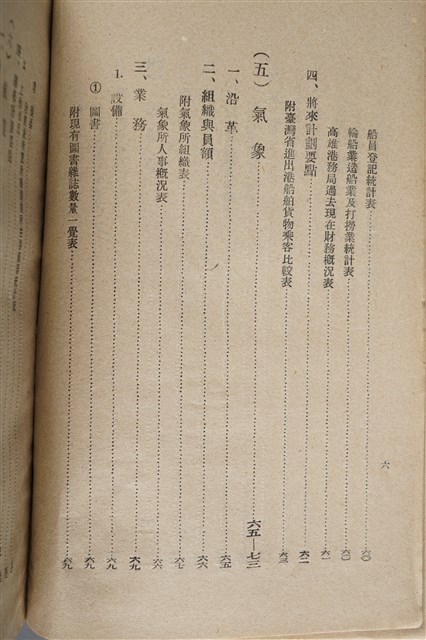 船員登記統計表……六〇
輪船業造船業及打撈業統計表……六〇
高雄港務局過去現在財務概況表……六一
四、將來計劃要點……六二
附臺灣省進出港船舶貨物乘客比較表……六三
(五)氣象……六五—七三
一、沿革……六五
二、組織與員額……六六
附氣象所組織表……六七
氣象所人事概況表……六八
三、業務……六九
1.設備……六九
①圖書……六九
附現有圖書雜誌數量一覽表……六九
六